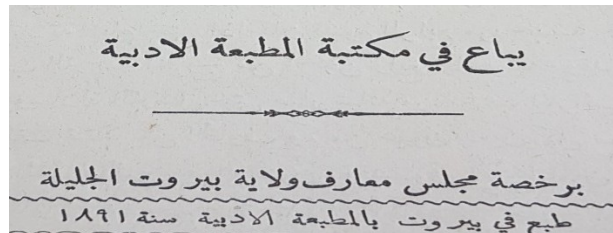 يباع في مكتبة المطبعة الادبية
برخصة مجلس معارف ولاية بيروت الجليلة
طبع في بيروت بالمطبعة الادبية سنة ١٨٩١